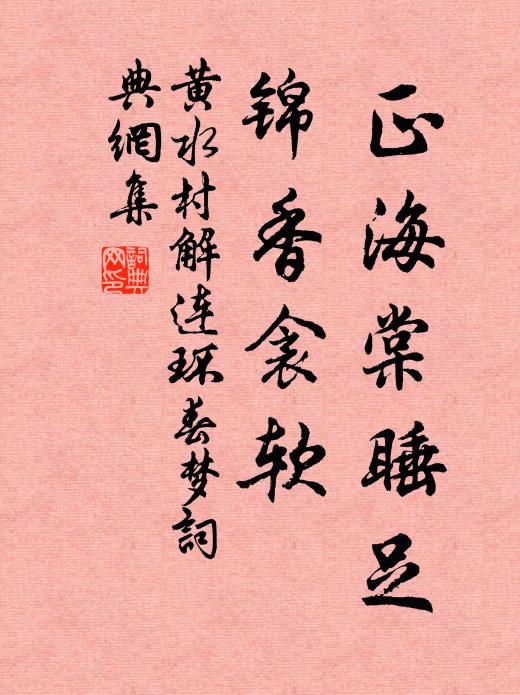 正海棠睡足
锦香衾软
黄水村解连环春梦詞
典網集
詞典
网印